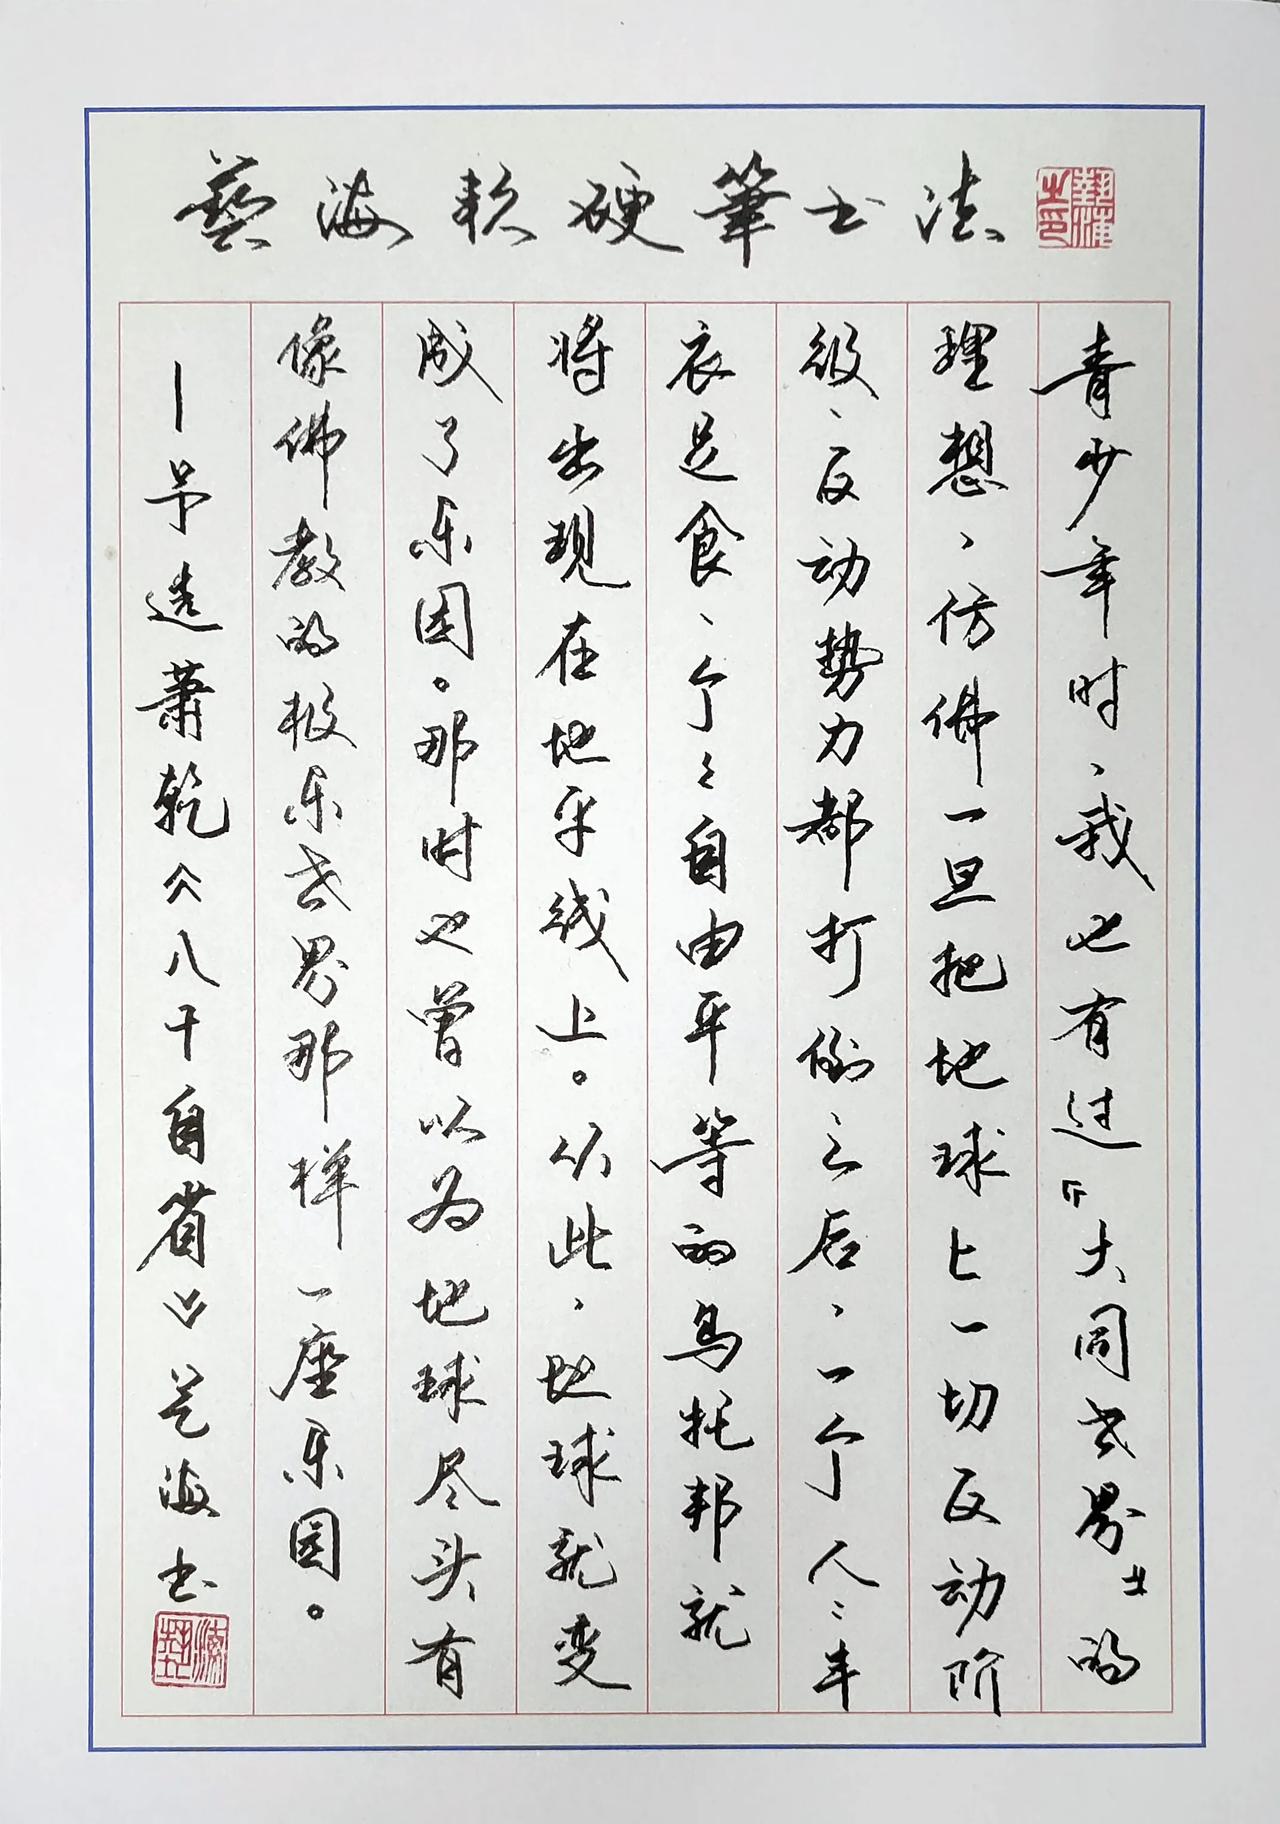 藝海软硬筆书法
藝海之印
青少年时，我也有过『大同世界』的
理想，仿佛一旦把地球上一切反动阶
级、反动势力都打倒之后，一个人々丰
衣足食、个々自由平等的乌托邦就
将出现在地平线上。从此，地球就变
成了乐园。那时也曾以为地球尽头有
像佛教的极乐世界那样一座乐园。
—节选萧乾《八十自省》艺海书
藝海